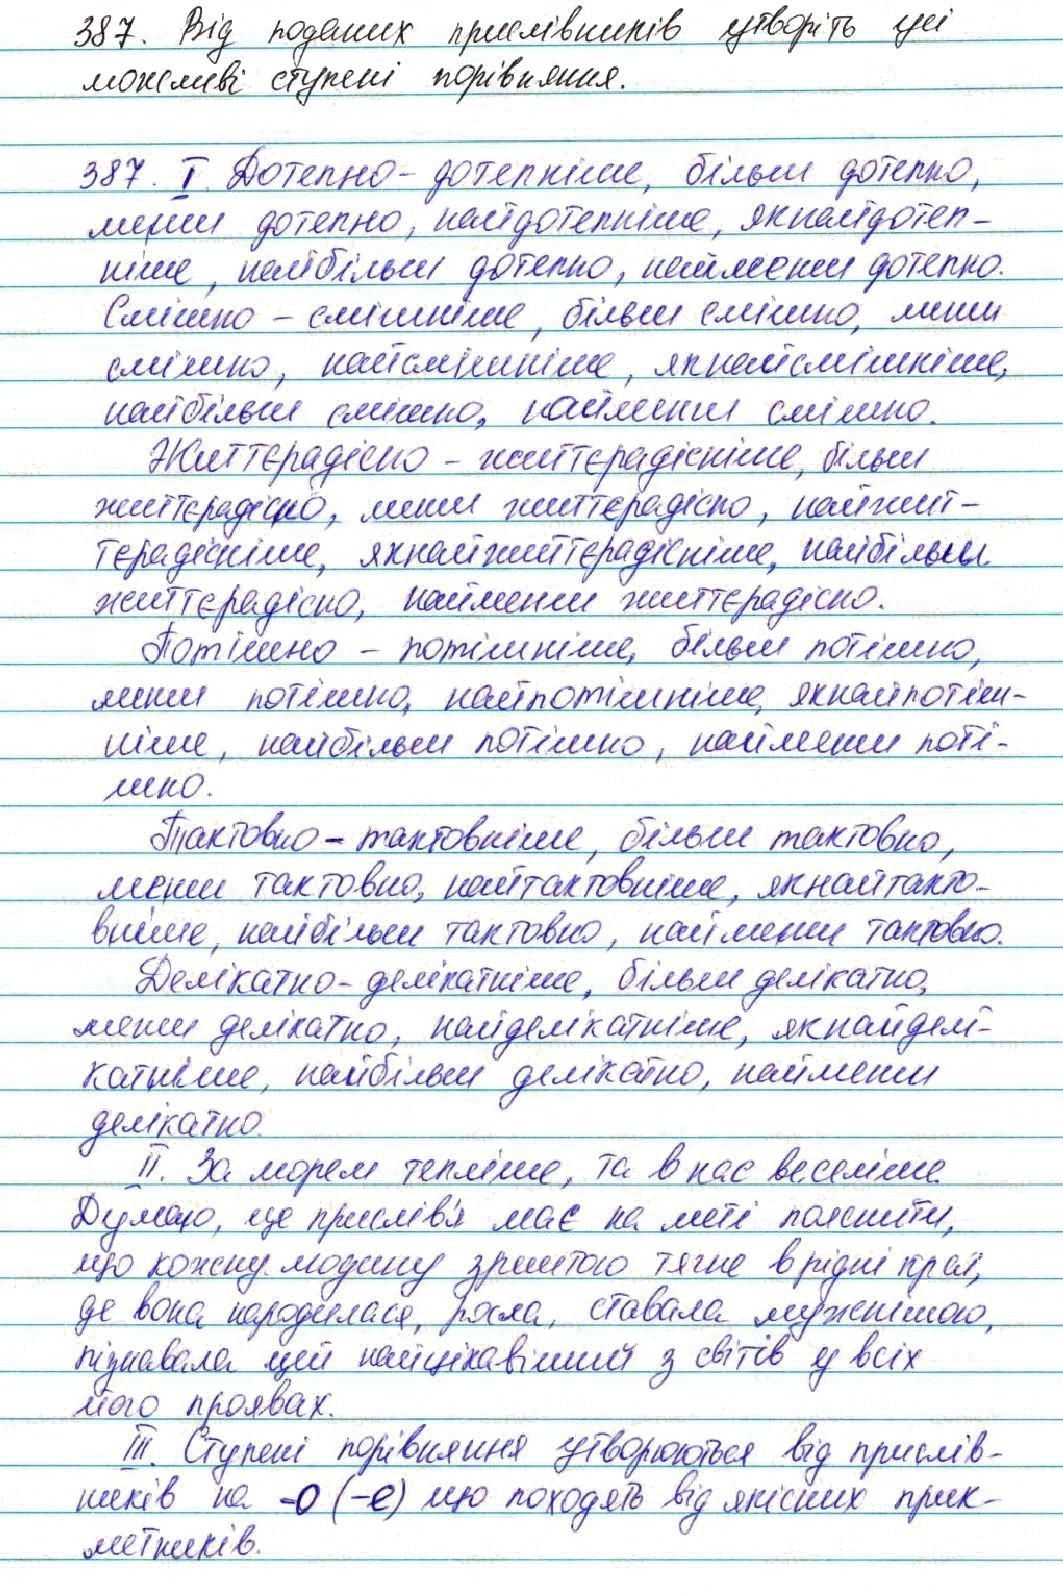 387. Від поданих прислівників утворіть усі
можливі ступені порівняння.
387. I. Дотепно - дотепніше, більш дотепно,
менш дотепно, найдотепніше, якнайдотеп-
ніше, найбільш дотепно, найменш дотепно.
Смішно - смішніше, більш смішно, менш
смішно, найсмішніше, якнайсмішніше,
найбільш смішно, найменш смішно.
Життєрадісно - життєрадісніше, більш
життєрадісно, менш життєрадісно, найжит-
тєрадісніше, якнайжиттєрадісніше, найбільш
життєрадісно, найменш життєрадісно.
Потішно - потішніше, більш потішно,
менш потішно, найпотішніше, якнайпотіш-
ніше, найбільш потішно, найменш поті-
шно.
Тактовно - тактовніше, більш тактовно,
менш тактовно, найтактовніше, якнайтакто-
вніше, найбільш тактовно, найменш тактовно.
Делікатно - делікатніше, більш делікатно,
менш делікатно, найделікатніше, якнайделі-
катніше, найбільш делікатно, найменш
делікатно.
II. За морем тепліше, та в нас веселіше.
Думаю, це прислів'я має на меті пояснити,
що кожну людину зрештою тягне в рідні края,
де вона народилася, росла, ставала мужнішою,
пізнавала цей найцікавіший з світів у всіх
його проявах.
III. Ступені порівняння утворюються від прислів-
ників на -о (-е) що походять від якісних прик-
метників.